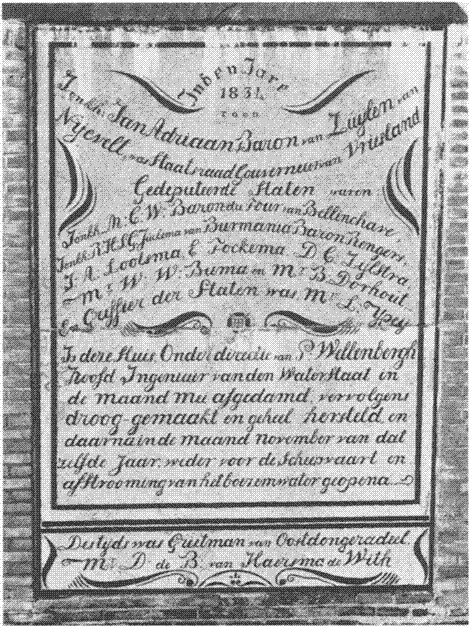 In den Jare
1834
toen
Jonkh. Jan Adriaan Baron van Zuylen van
Nyevelt, was Staatsraad Gouverneur van Vriesland
Gedeputeerde Staten waren
Jonkh. M. C. W. Baron du Tour van Bellinchave
Jonkh. R. H. S. G. Juckema van Burmania Baron Rengers,
J. A. Lootsma, E. Fockema D. C. Tjilstra,
Mr. W. W. Buma en Mr. B. Dorhout
En Griffier der Staten was, Mr. L. Ypey
Is deze sluis Onder directie van P. Willenbergh
Hoofd Ingenieur van den Waterstaat in
de maand Mei afgedamd, vervolgens
droog gemaakt en geheel hersteld en
daarna in de maand November van dat
zelfde Jaar, weder voor de Scheepvaart en
afstrooming van het boezemwater geopend
Destijds was Grietman van Oostdongeradeel
Mr. D. de B. van Haersma de With